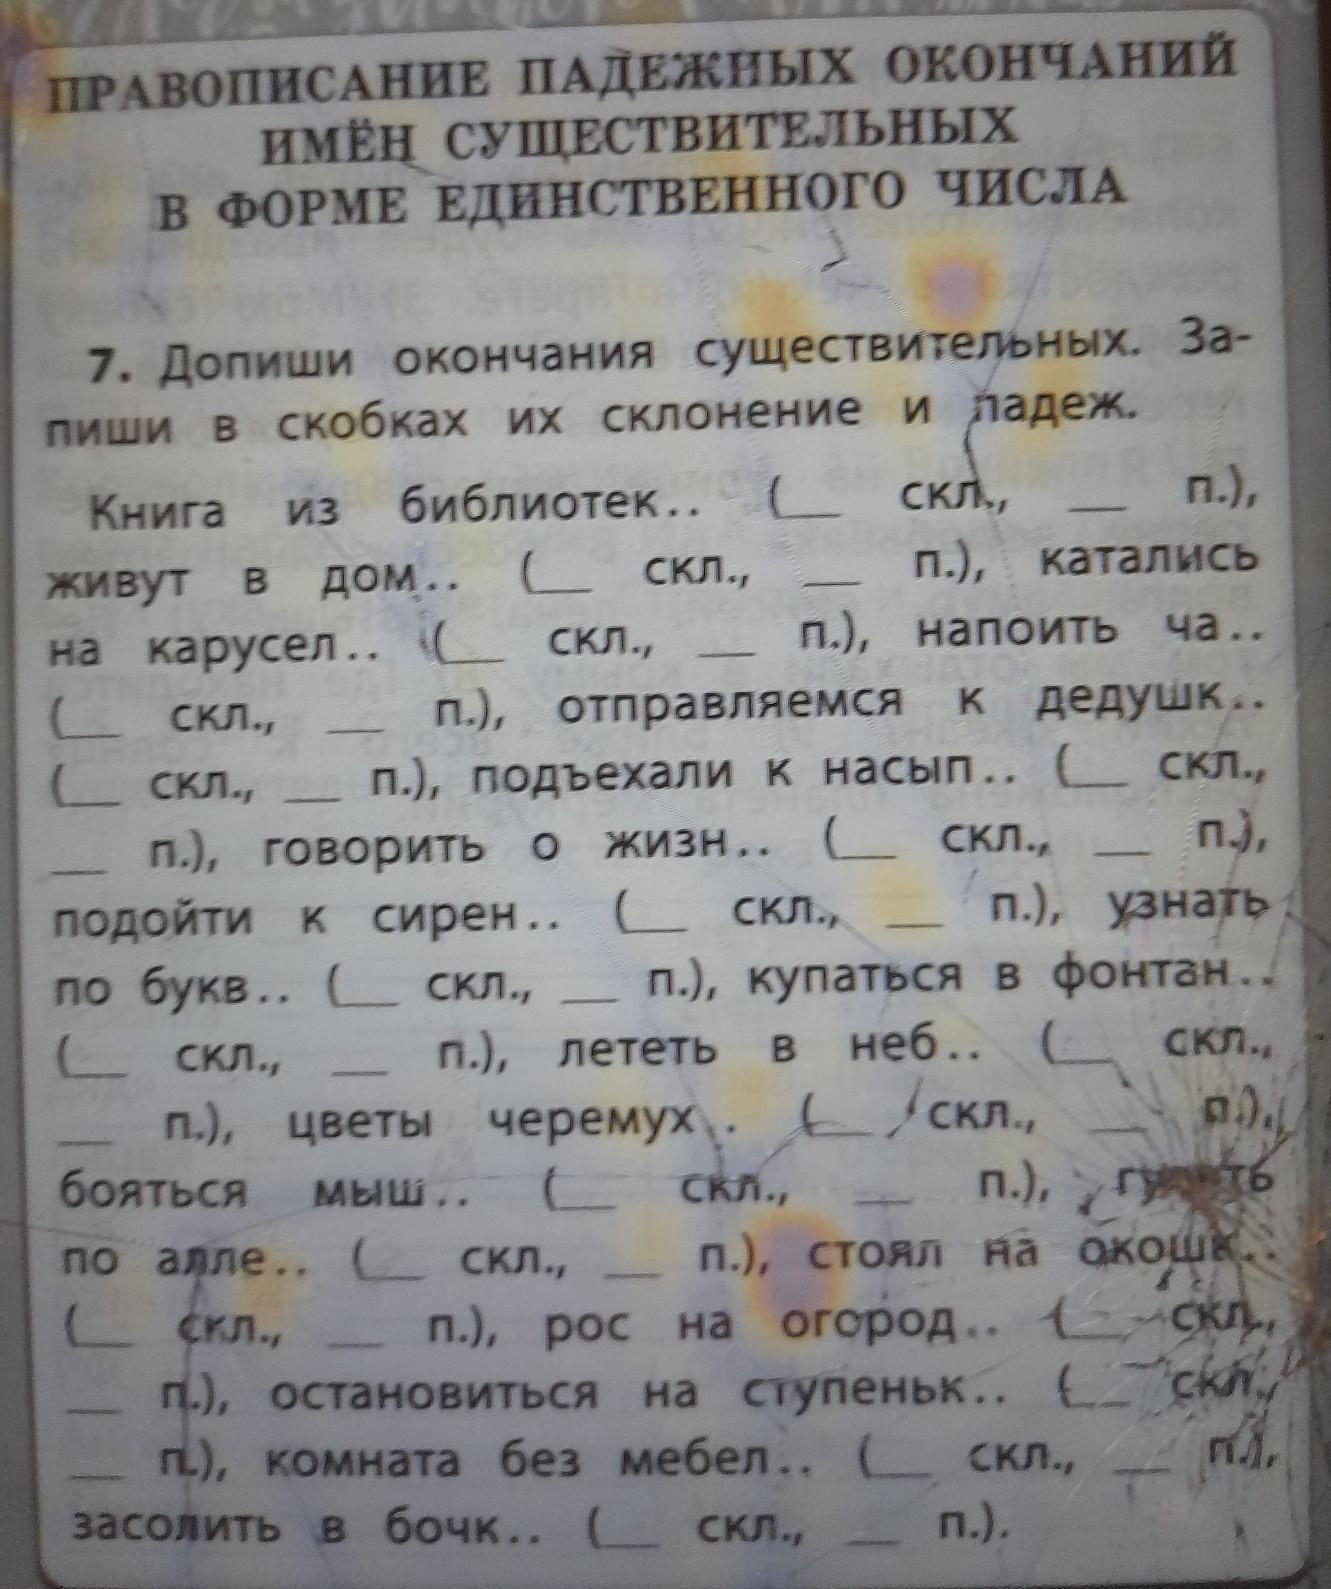 ПРАВОПИСАНИЕ ПАДЕЖНЫХ ОКОНЧАНИЙ
ИМЁН СУЩЕСТВИТЕЛЬНЫХ
В ФОРМЕ ЕДИНСТВЕННОГО ЧИСЛА
7. Допиши окончания существительных. За-
пиши в скобках их склонение и падеж.
Книга из библиотек.. (__ скл., __ п.),
живут в дом.. (__ скл., __ п.), катались
на карусел.. (__ скл., __ п.), напоить ча..
(__ скл., __ п.), отправляемся к дедушк..
(__ скл., __ п.), подъехали к насып.. (__ скл.,
__ п.), говорить о жизн.. (__ скл., __ п.),
подойти к сирен.. (__ скл., __ п.), узнать
по букв.. (__ скл., __ п.), купаться в фонтан..
(__ скл., __ п.), лететь в неб.. (__ скл.,
__ п.), цветы черемух.. (__ скл., __ п.),
бояться мыш.. (__ скл., __ п.),
по алле.. (__ скл., __ п.), стоял на окошк..
(__ скл., __ п.), рос на огород.. (__ скл.,
__ п.), остановиться на ступеньк.. (__ скл.,
__ п.), комната без мебел.. (__ скл., __ п.),
засолить в бочк.. (__ скл., __ п.).